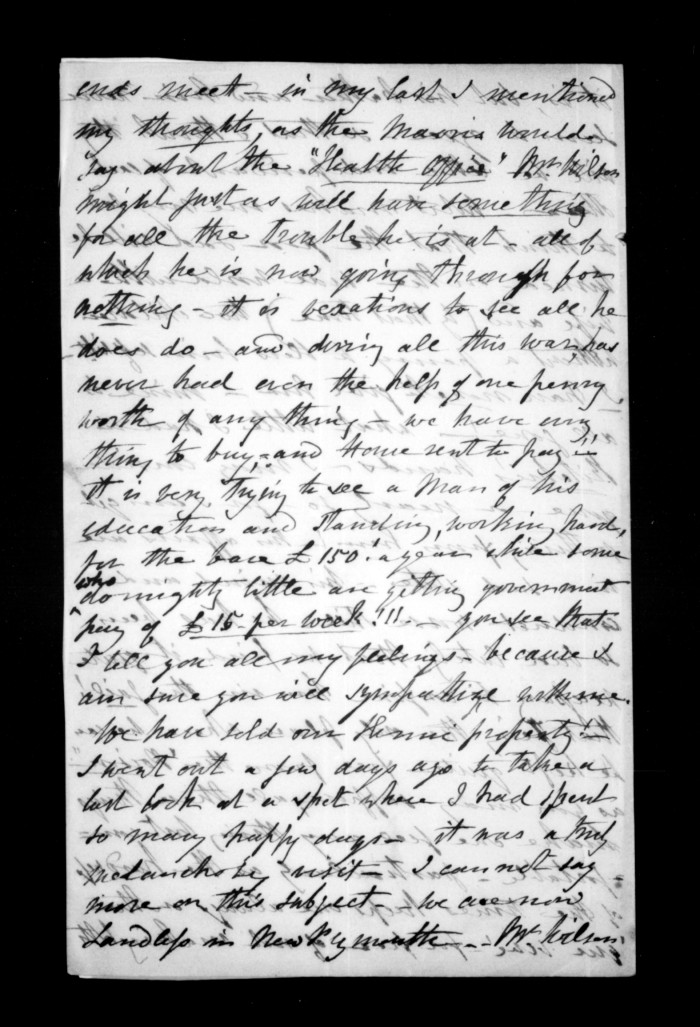 ends meet – in my last I mentioned
my thoughts, as the Maoris would
say about the "Health Office" Mr. Wilson
might just as well have something
for all the trouble he is at – all of
which he is now going through for
nothing – it is vexatious to see all he
does do – and during all this war, has
never had even the help of one penny
worth of any thing – we have every
thing to buy, and House rent to pay!!
it is very trying to see a Man of his
education and standing, working hard,
for the bare £150! a year while some
who
do mighty little are getting government
pay of £15 per week!!! – you see that
I tell you all my feelings – because I
am sure you will sympathize with me.
We have sold our Henui property! –
I went out a few days ago to take a
last look at a spot where I had spent
so many happy days – it was a truly
melancholy visit – I can not say
more on this subject – we are now
Landless in New Plymouth – Mr. Wilson